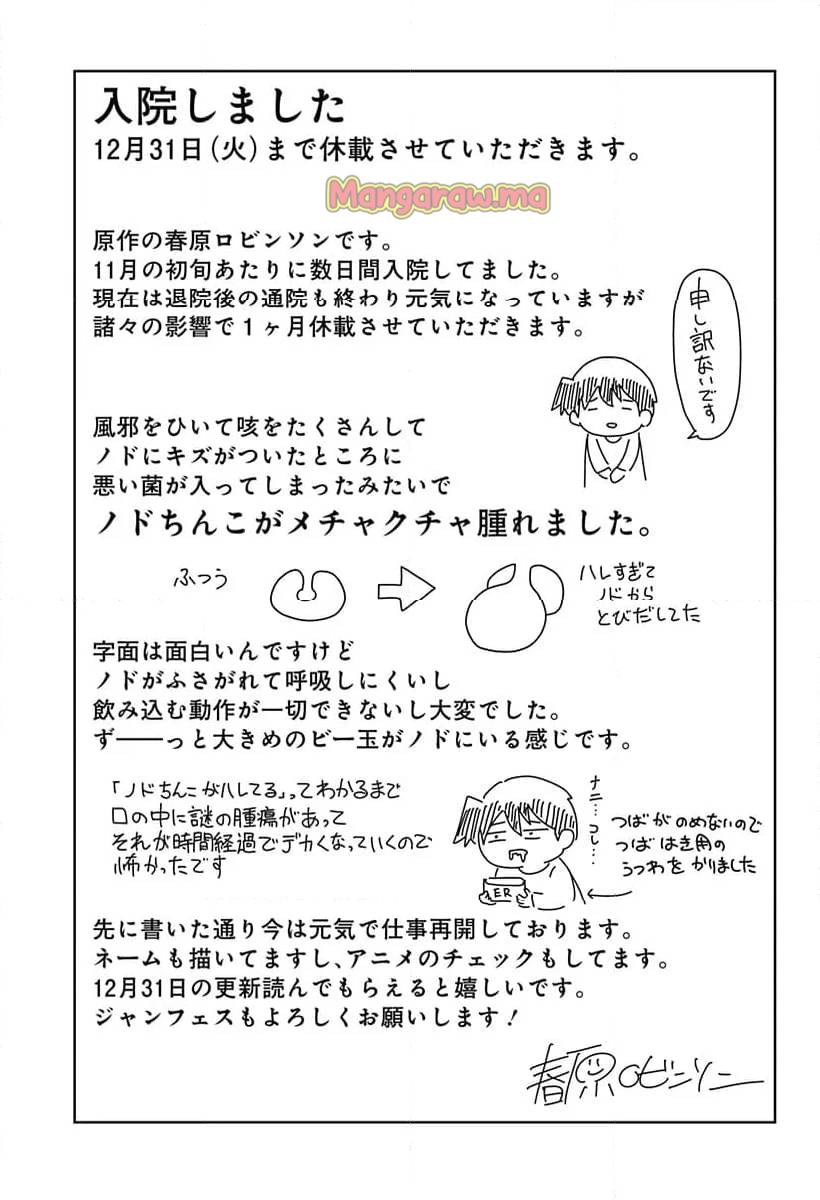 入院しました
12月31日(火)まで休載させていただきます。
Mangaraw.ma
原作の春原ロビンソンです。
11月の初旬あたりに数日間入院してました。
現在は退院後の通院も終わり元気になっていますが
諸々の影響で1ヶ月休載させていただきます。
申し訳ないです
風邪をひいて咳をたくさんして
ノドにキズがついたところに
悪い菌が入ってしまったみたいで
ノドちんこがメチャクチャ腫れました。
ふつう
ハレすぎて
ノドから
とびだしてた
字面は面白いんですけど
ノドがふさがれて呼吸しにくいし
飲み込む動作が一切できないし大変でした。
ず――っと大きめのビー玉がノドにいる感じです。
「ノドちんこがハレてる」ってわかるまで
口の中に謎の腫瘍があって
それが時間経過でデカくなっていくので
怖かったです
ナニ…
コレ…
ER
つばがのめないので
つばはき用の
うつわをかりました
先に書いた通り今は元気で仕事再開しております。
ネームも描いてますし、アニメのチェックもしてます。
12月31日の更新読んでもらえると嬉しいです。
ジャンフェスもよろしくお願いします!
春原ロビンソン